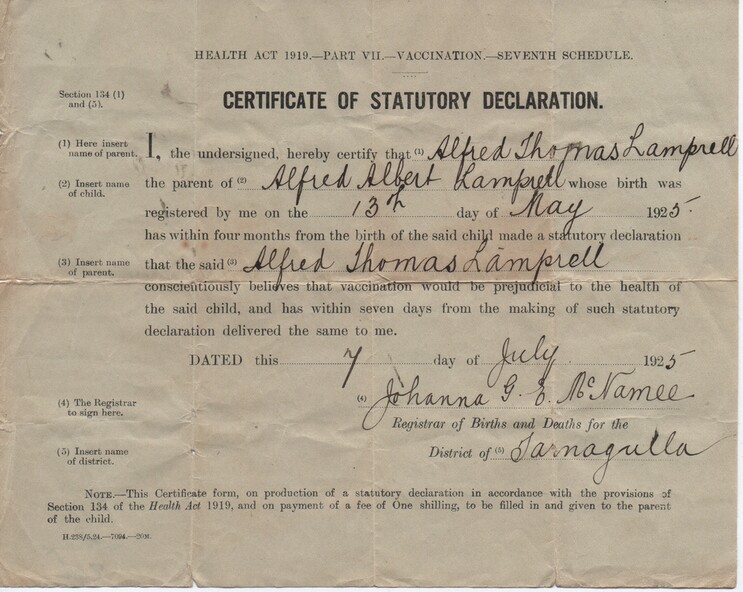 HEALTH ACT 1919.—PART VII.—VACCINATION.—SEVENTH SCHEDULE.
Section 134 (1)
and (5).
CERTIFICATE OF STATUTORY DECLARATION.
(1) Here insert
name of parent.
I, the undersigned, hereby certify that (1) Alfred Thomas Lamprell
(2) Insert name
of child.
the parent of (2) Alfred Albert Lamprell whose birth was
registered by me on the 13th day of May 1925
has within four months from the birth of the said child made a statutory declaration
(3) Insert name
of parent.
that the said (3) Alfred Thomas Lamprell
conscientiously believes that vaccination would be prejudicial to the health of
the said child, and has within seven days from the making of such statutory
declaration delivered the same to me.
DATED this 7 day of July 1925
(4) The Registrar
to sign here.
(4) Johanna G. E. McNamee
Registrar of Births and Deaths for the
(5) Insert name
of district.
District of (5) Tarnagulla
NOTE.—This Certificate form, on production of a statutory declaration in accordance with the provisions of
Section 134 of the Health Act 1919, and on payment of a fee of One shilling, to be filled in and given to the parent
of the child.
H.239/5.24.—7094.—20M.